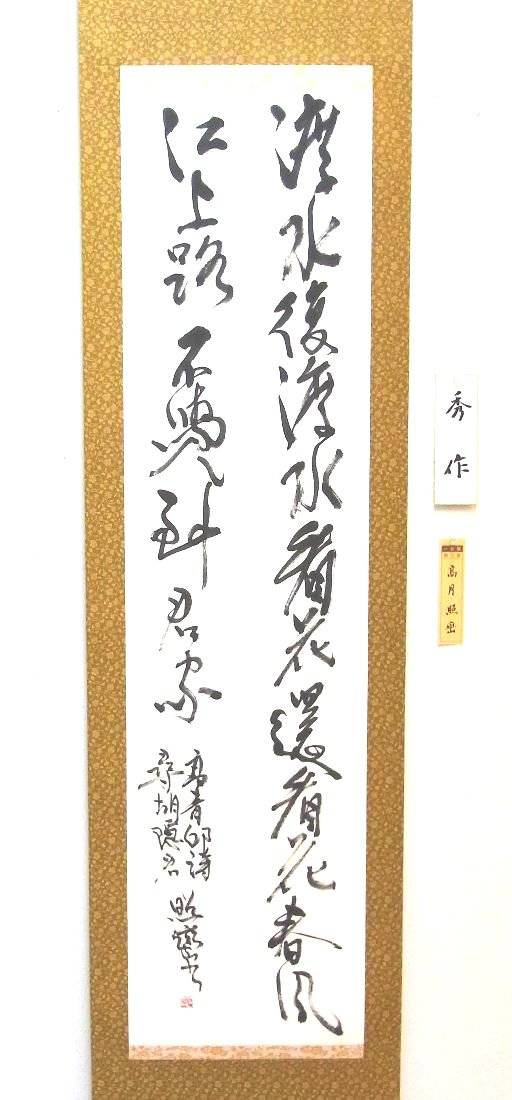 渡水復渡水看花還看花春風
江上路不覺到君家
高青邱詩
尋胡隠君 照巒書
秀作
高月照巒